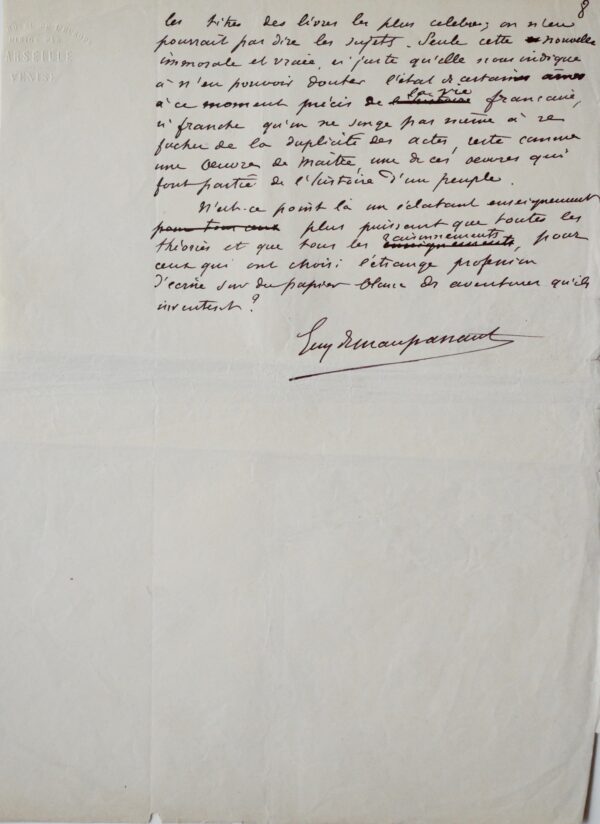 8
MARSEILLE
VENISE
les titres des livres les plus celebres; on n'en
pourrait pas dire les sujets. Seule cette nouvelle
immorale et vraie, si juste qu'elle nous indique
à n'en pouvoir douter l'état de certaines âmes
à ce moment précis de la vie française,
si franche qu'on ne songe pas même à se
facher de la duplicité des actes, reste comme
une Oeuvre de Maître une de ces oeuvres qui
font partie de l'histoire d'un peuple.
N'est-ce point là un éclatant enseignement
pour tous ceux plus puissant que toutes les
théories et que tous les raisonnements, pour
ceux qui ont choisi l'étrange profession
d'écrire sur du papier blanc des aventures qu'ils
inventent?
Guy de Maupassant